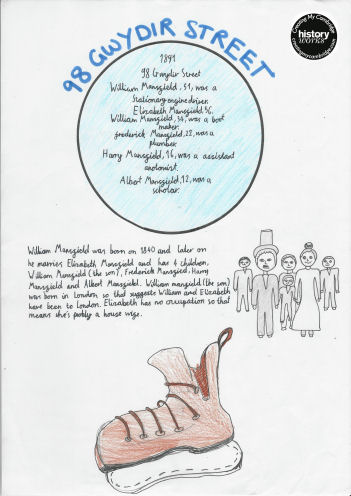 Creating My Cambridge
history
WORKS
creatingmycambridge.com
98 GWYDIR STREET
1891
98 Gwydir Street
William Mansfield, 51, was a
Stationary engine driver.
Elizabeth Mansfield 56.
William Mansfield, 34, was a boot
maker.
Frederick Mansfield, 22, was a
plumber.
Harry Mansfield, 16, was a assistant
Albert Mansfield, 12, was a
scholar.
William Mansfield was born on 1840 and later on
he marries Elizabeth Mansfield and has 4 children,
William Mansfield (the son), Frederick Mansfied, Harry
Mansfield and Albert Mansfield. William mansfield (the son)
was born in London so that suggests William and Elizabeth
have been to London. Elizabeth has no occupation so that
means she's a house wife.